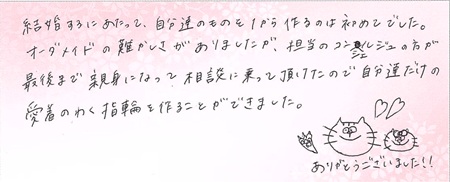 結婚するにあたって、自分達のものを1から作るのは初めてでした。
オーダーメイドの難かしさがありましたが、担当のコンシェルジュの方が
最後まで親身になって相談に乗って頂けたので自分達だけの
愛着のわく指輪を作ることができました。
ありがとうございました!!